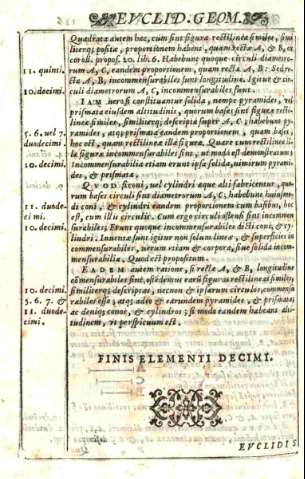 EVCLID. GEOM.
Quadrata autem hæc, cum sint figuræ rectilineæ similes, simi
literq́; positæ, proportionem habent, quam rectæ A, & B, ex
coroll. propos. 20. lib. 6. Habebunt quoque circuli diametro-
11. quinti.
rum A, C, eandem proportionem, quam recta A, B: Sed re-
ctæ A, B, incommensurabiles sunt longitudine. Igitur & cir
10. decimi.
culi diametrorum A, C, incommensurabiles sunt.
IAM uerò si constituantur solida, nempe pyramides, uel
prismata eiusdem altitudinis, quorum bases sint figuræ recti-
lineæ similes, similiterq́; descriptæ super A, C; habebunt py-
5. 6. uel 7.
duodecimi.
ramides, atque prismata eandem proportionem, quam bases,
hoc est, quam rectilineæ illæ figuræ. Quare cum rectilineæ il-
læ figuræ incommensurabiles sint, ut modo est demonstratum,
10. decimi.
incommensurabilia etiam erunt ipsa solida, nimirum pyrami-
des, & prismata.
QVOD si coni, uel cylindri æque alti fabricentur, quo-
rum bases circuli sint diametrorum A, C; habebunt huiusmo-
11. duode
cimi.
di coni, & cylindri eandem proportionem cum basibus, hoc
est, cum illis circulis. Cum ergo circuli ostensi sint incommen
10. decimi.
surabiles; Erunt quoque incommensurabiles dicti coni, & cy-
lindri. Inuenta sunt igitur non solum lineæ, & superficies in-
commensurabiles, uerum etiam & corpora, siue solida incom-
mensurabilia. Quod est propositum.
EADEM autem ratione, si rectæ A, & B, longitudine
commensurabiles sint, ostendemus earum figuras rectilineas similes,
10. decimi.
similiterq́; descriptas, necnon & ipsarum circulos, commensu
5. 6. 7. &
11. duode-
cimi.
rabiles esse; atq; adeo & earundem pyramides, & prismata;
ac denique conos, & cylindros; si modo eandem habeant al-
titudinem, ut perspicuum est.
FINIS ELEMENTI DECIMI.
EVCLIDIS